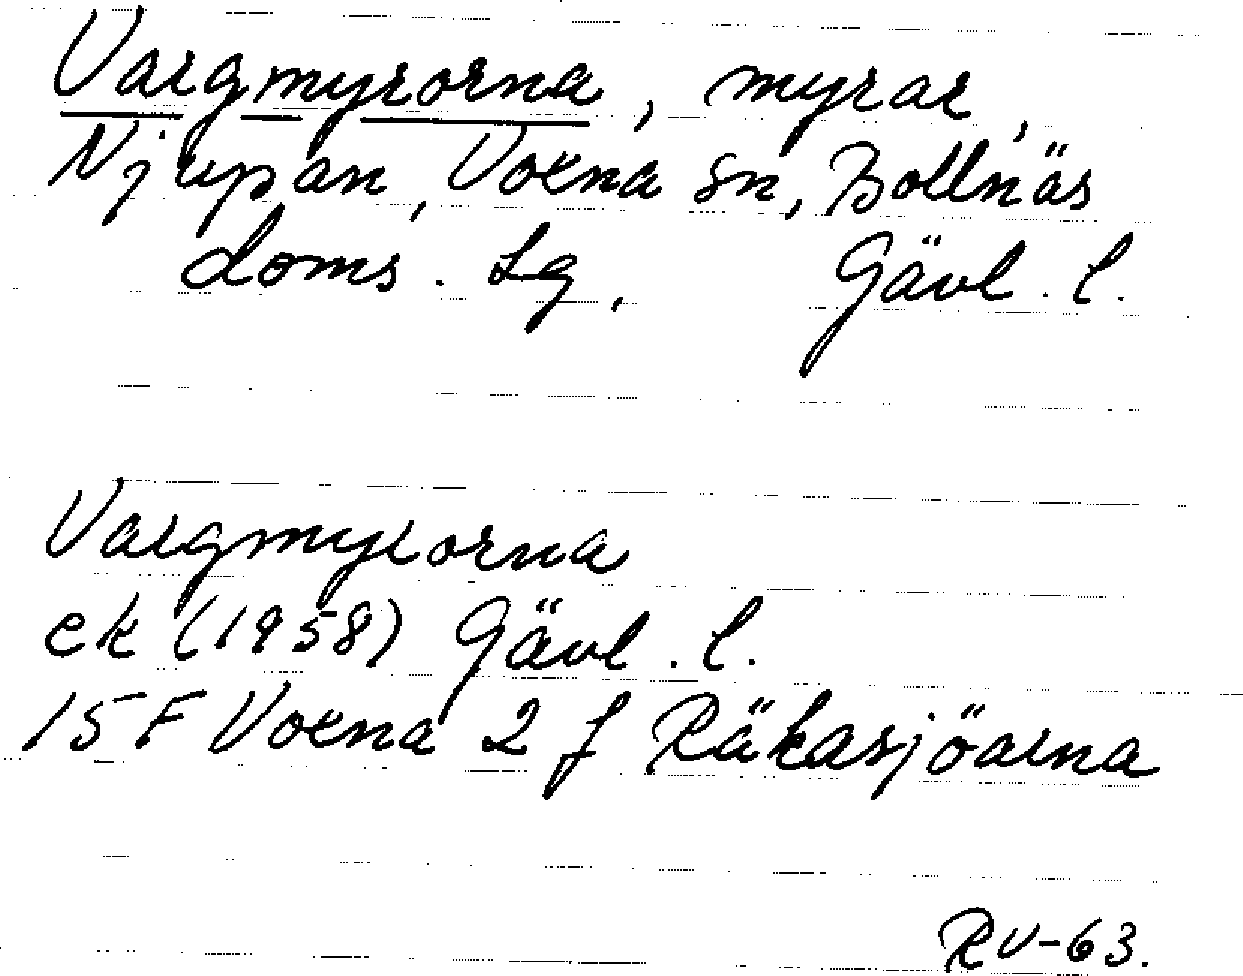 Vargmyrorna, myrar,
Njupan, Voxna sn, Bollnäs
doms. lg, Gävl. l.
Vargmyrorna
ek (1958) Gävl. l.
15 F Voxna 2 f Räkasjöarna
RV-63.